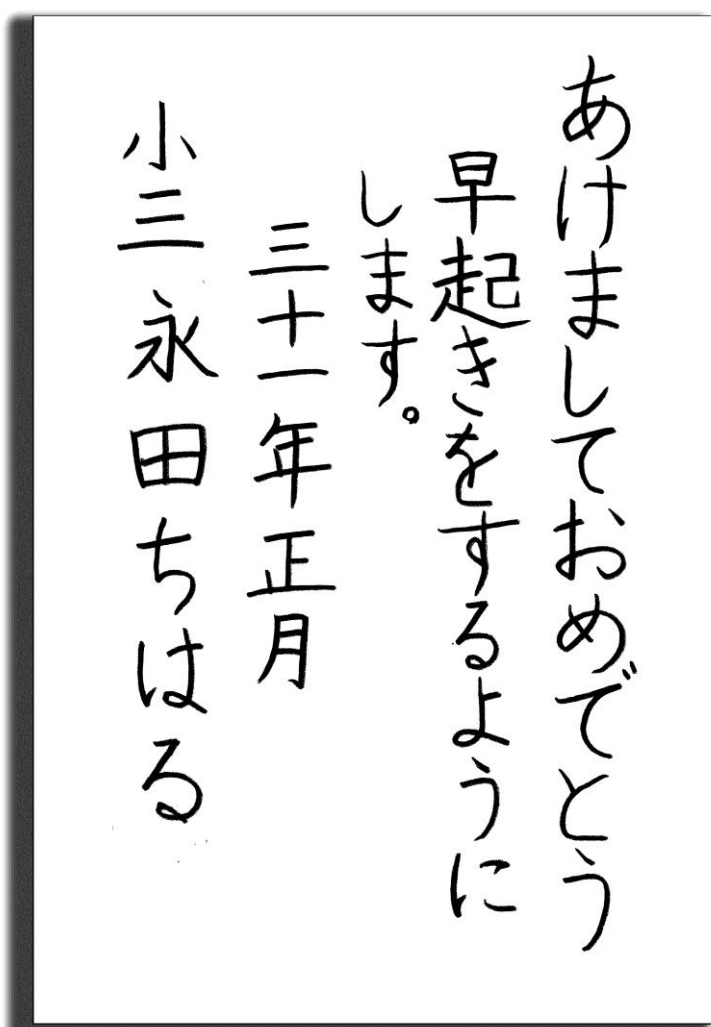 あけましておめでとう
早起きをするように
します。
三十一年正月
小三 永田ちはる